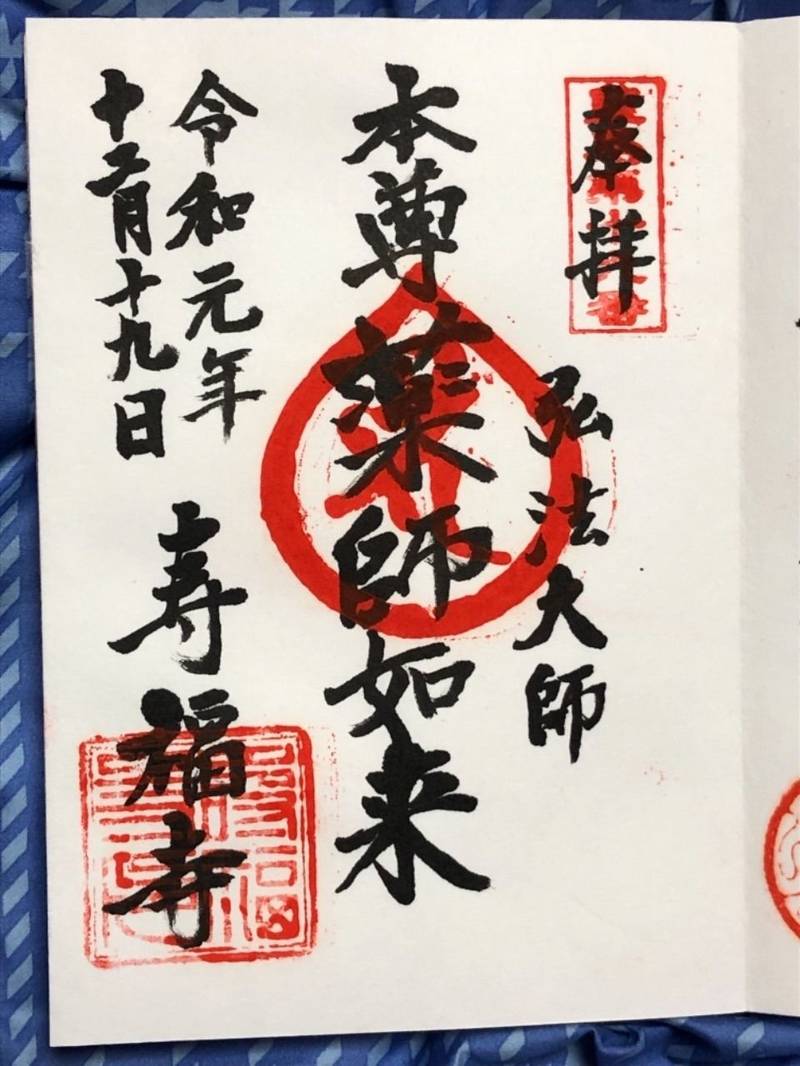 奉拝
弘法大師
本尊薬師如来
令和元年
十二月十九日
寿福寺